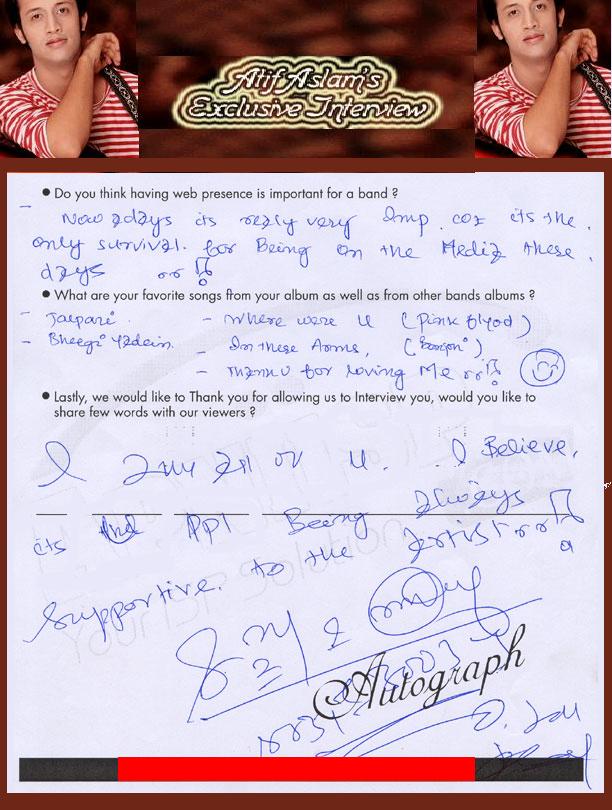 Atif Aslam's
Exclusive Interview
● Do you think having web presence is important for a band ?
- Now adays its realy very Imp. coz its the
only survival. for Being on the Media these
days
● What are your favorite songs from your album as well as from other bands albums ?
- Jalpari. - Where were U (Pink Flyod)
- Bheegi Yadein. - In these Arms, (Bonjovi)
- Thank U for loving Me
● Lastly, we would like to Thank you for allowing us to Interview you, would you like to
share few words with our viewers ?
I am all of U. I Believe,
its the Ppl Being always
supportive. to the Artist
Autograph